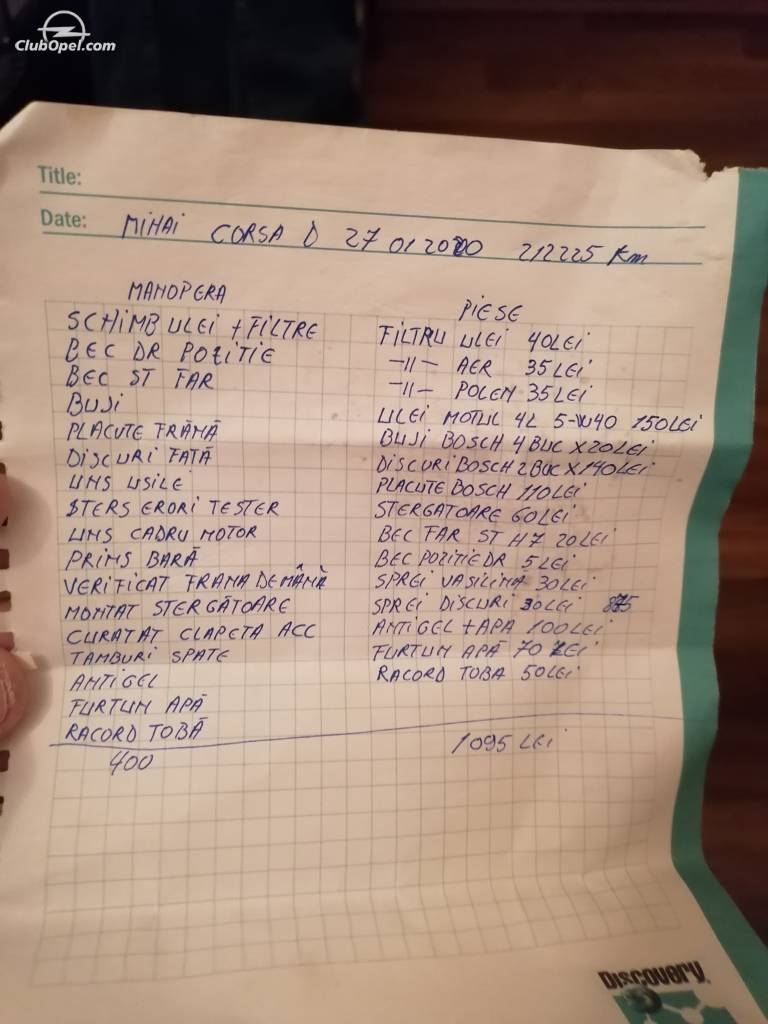 ClubOpel.com
Title:
Date: MIHAI CORSA D 27 01 2020 212225 Km
MANOPERA
SCHIMB ULEI + FILTRE
BEC DR POZITIE
BEC ST FAR
BUJI
PLACUTE FRÂMĂ
DISCURI FAȚĂ
UNS USILE
STERS ERORI TESTER
UNS CADRU MOTOR
PRIMS BARĂ
VERIFICAT FRAMA DE MÂMĂ
MONTAT STERGĂTOARE
CURATAT CLAPETA ACC
TAMBURI SPATE
ANTIGEL
FURTUM APĂ
RACORD TOBĂ
400
PIESE
FILTRU ULEI 40LEI
-II- AER 35LEI
-II- POLEN 35LEI
ULEI MOTUL 4L 5-W40 150LEI
BUJI BOSCH 4 BUC X 20LEI
DISCURI BOSCH 2BUC X 140LEI
PLACUTE BOSCH 110LEI
STERGATOARE 60LEI
BEC FAR ST H7 20LEI
BEC POZITIE DR 5LEI
SPREI VASILIMA 30LEI
SPREI DISCURI 30LEI 875
ANTIGEL + APA 100LEI
FURTUM APĂ 70 LEI
RACORD TOBA 50LEI
1095 LEI
DISCOVERY